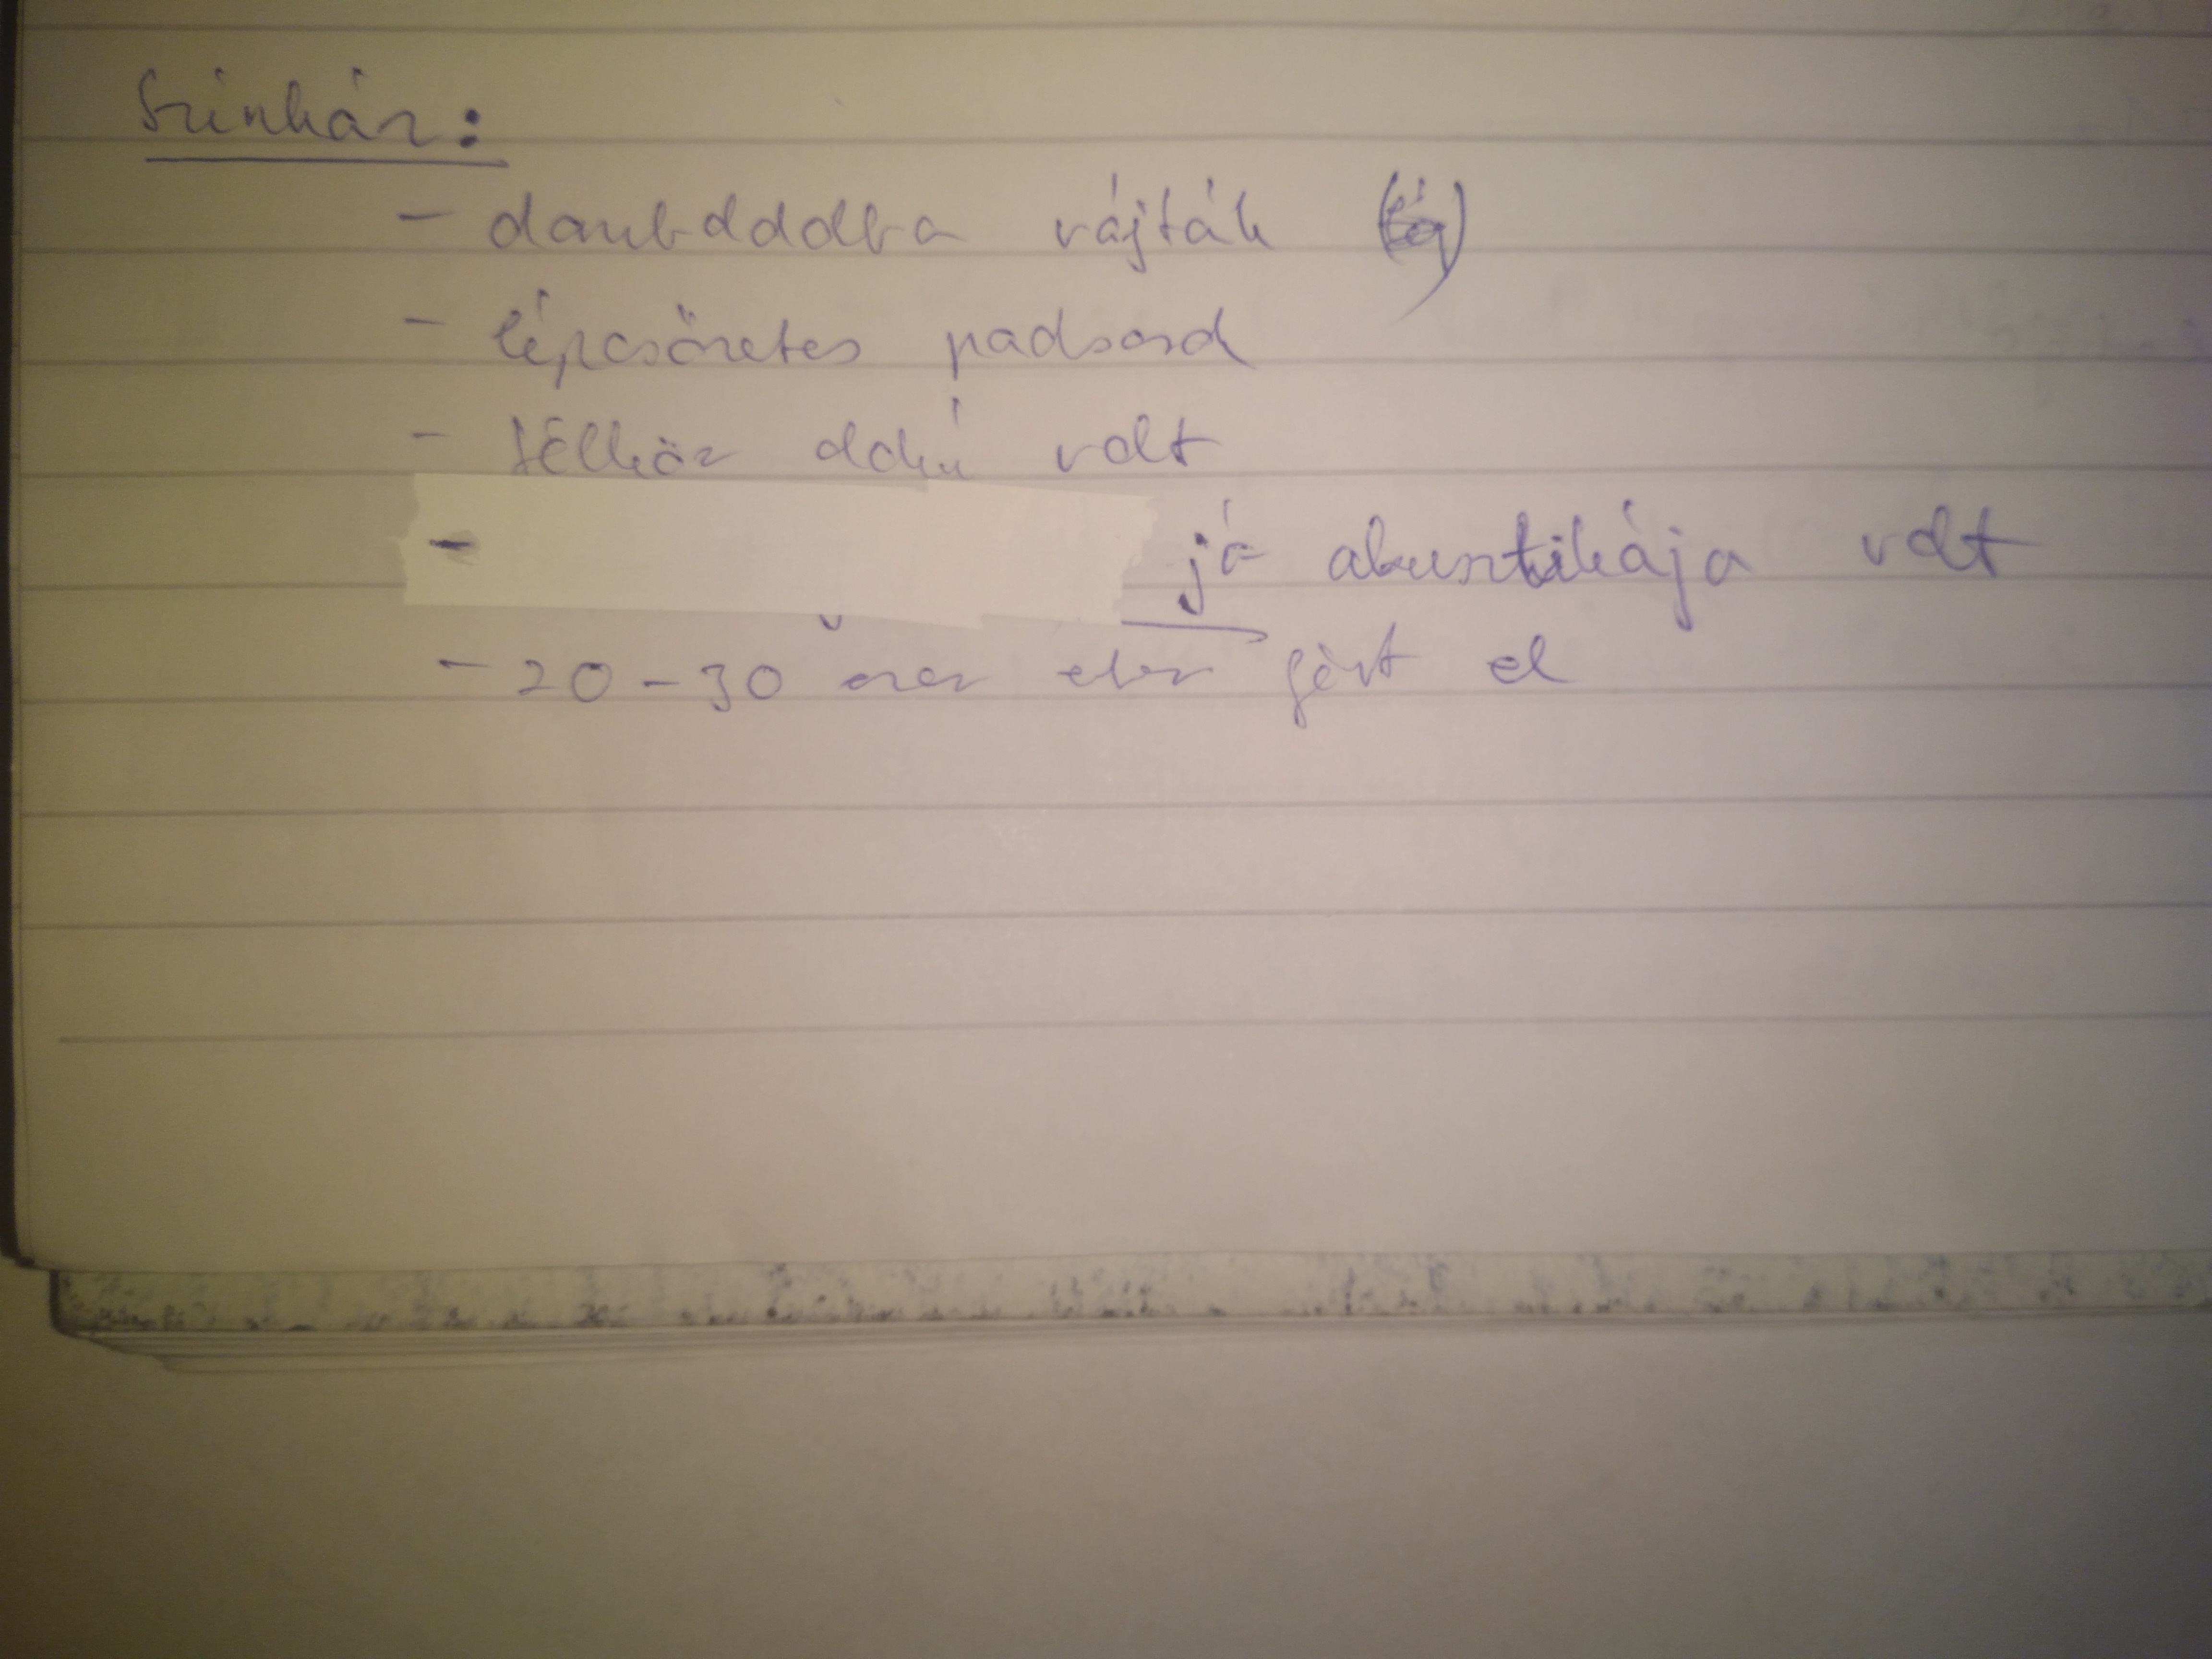 Színház:
- domboldalba vájták
- lépcsőzetes padsorok
- félkör alakú volt
- jó akusztikája volt
- 20-30 ezer ember fért el